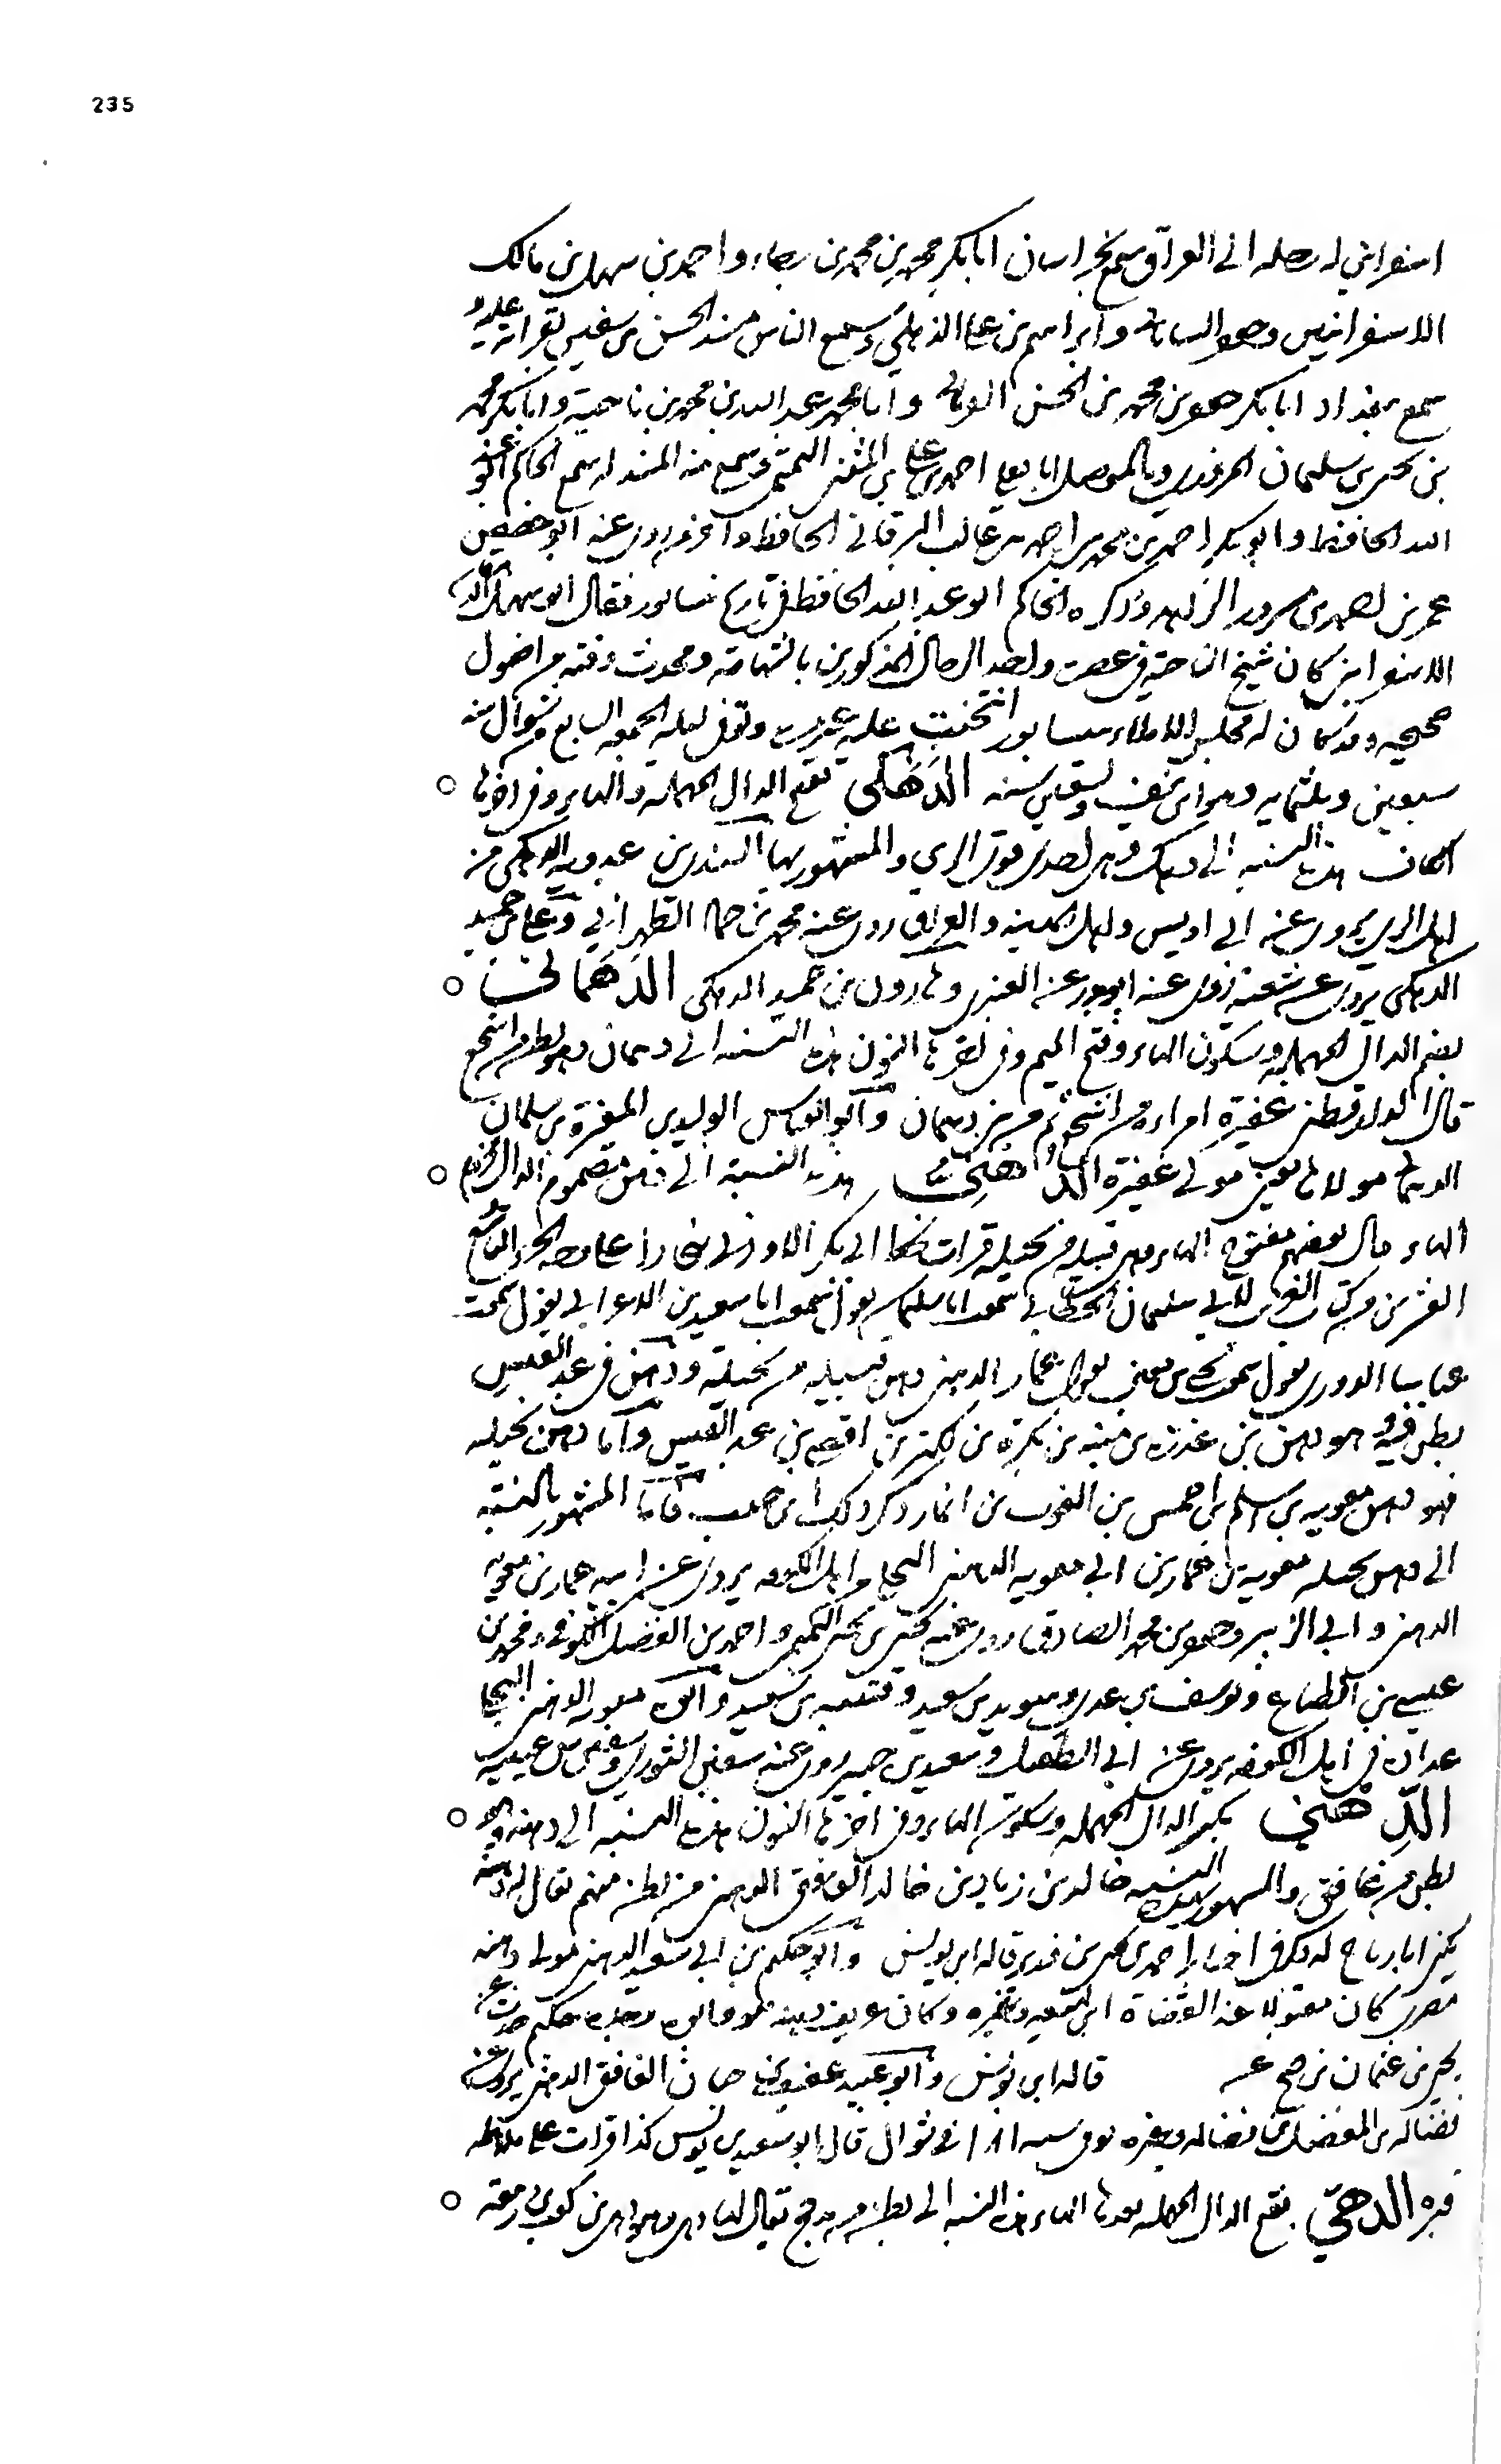 235
اسفرايني له رحلة الى العراق سمع بخراسان ابا بكر محمد بن محمد بن رجاء واحمد بن سهل بن مالك
الاسفراينيين وجعفر وابراهيم بن علي الذهلي وسمع الناس مسند الحسن بن سفين بقراته عليه و
سمع ببغداد ابا بكر جعفر بن محمد بن الحسن الفريابي وابا محمد عبد الله بن محمد بن ناجية وابا بكر محمد
بن يحيى بن سليمان المروزي وبالموصل ابا يعلى احمد بن علي بن المثنى التميمي وسمع منه المسند له سمع الحاكم ابو عبد
الله الحافظ وابو بكر احمد بن محمد بن احمد بن غالب البرقاني الحافظ واخر من روى عنه ابو حفص
عمر بن احمد بن مسرور الزاهد وذكره الحاكم ابو عبد الله الحافظ في تاريخ نيسابور فقال ابو سهل
الاسفرايني كان شيخ الناحية في عصره واحد الرجال المذكورين بالشهامة ومحدث وقته من اصول
صحيحه وقد كان له مجلس الاملاء بنيسابور انتخبت عليه غير مرة وتوفي ليلة الجمعة السابع من شوال سنة
سبعين وثلثمايه وهو ابن نيف وتسعين سنه الدَهَكي بفتح الدال المهملة والهاء وفي اخرها
الكاف هذه النسبه الى دهك وهي احدى قرى الري والمشهور بها السندي بن عبدويه الدهكي من
اهل الري يروي عن ابي اويس واهل المدينه والعراق روى عنه محمد بن حماد الطهراني وعلي بن حميد
الدهكي يروي عن شعبه روى عنه ابو بدر عن العنبري وهارون بن حميد الدهكي الدَهمَاني
بضم الدال المهمله وسكون الهاء وفتح الميم وفي اخرها النون هذه النسبه الى دهمان وهو بطن من اشجع
قال الدارقطني عفيرة امراءة من اشجع ثم من بني دهمان وابو العباس الوليد بن المغيرة بن سليمان
الدهماني مولاهم مولى عفيرة الدُهنِي هذه النسبة الى دهن بضموم الدال
الهاء وقال بعضهم بفتح الهاء وهي قبيله من بجيله قرات بخط ابي بكر الاودني ببخارا على وجه الجزء التاسع
العشرين من كتاب الغريب لابي سليمان الخطابي سمعت ابا سليمان يقول سمعت ابا سعيد بن الاعرابي يقول سمعت
عباسا الدوري يقول سمعت يحيى بن معين يقول عمار الدهني دهن قبيله من بجيلة ودهن في عبد القيس
بطن فيه هو دهن بن عذرة بن منبه بن نكرة بن لكيز بن افصى بن عبد القيس واما دهن بجيله
فهو دهن بن معويه بن اسلم بن احمس بن الغوث بن انمار ذكر ذلك ابن حبيب فاما المشهور بالنسبة
الى دهن بجيله معوية بن عمار بن ابي معويه الدهني البجلي من اهل الكوفه يروي عن ابيه عمار بن معويه
الدهني وابي الزبير وجعفر بن محمد الصادق روى عنه يحيى بن يحيى التميمي واحمد بن الفضل الكوفي ومحمد بن
عيسى بن الطباع ويوسف بن عدي وسويد بن سعيد وقتيبه بن سعيد وابوه معويه الدهني البجلي
عداده في اهل الكوفه يروي عن ابي الطفيل وسعيد بن جبير روى عنه سفين الثوري وسفين بن عيينه
الدِّهنِي بكسر الدال المهمله وسكون الهاء وفي اخرها النون هذه النسبه الى دهنه وهو
بطن من غافق والمشهور بهذه النسبه خالد بن زياد بن خالد الغافقي الدهني من بطن منهم يقال له دهنه
يكنى ابا رباح له ذكر في اخبار احمد بن يحيى بن وزير قاله ابن يونس وابو حكيم بن ابي سعيد الدهني مولى دهنه
مصري كان مقبولا عند القضاة ابن لهيعه وغيره وكان عريف دهنه هو وابوه وجده حكيم حدث عن
يحيى بن عثمان بن صالح عنه قاله ابن يونس وابو عبيد عفيف بن حيان الغافقي الدهني يروي عنه
فضاله بن المفضل بن فضاله وغيره توفي سنه ١٨١ في شوال قال ابو سعيد بن يونس كذا قرات على بلاطه
قبره الدهيّ بفتح الدال المهمله بعدها الهاء هذه النسبه الى بطن من مذحج يقال لها دهي وهو دهي بن كعب بن ربيعه